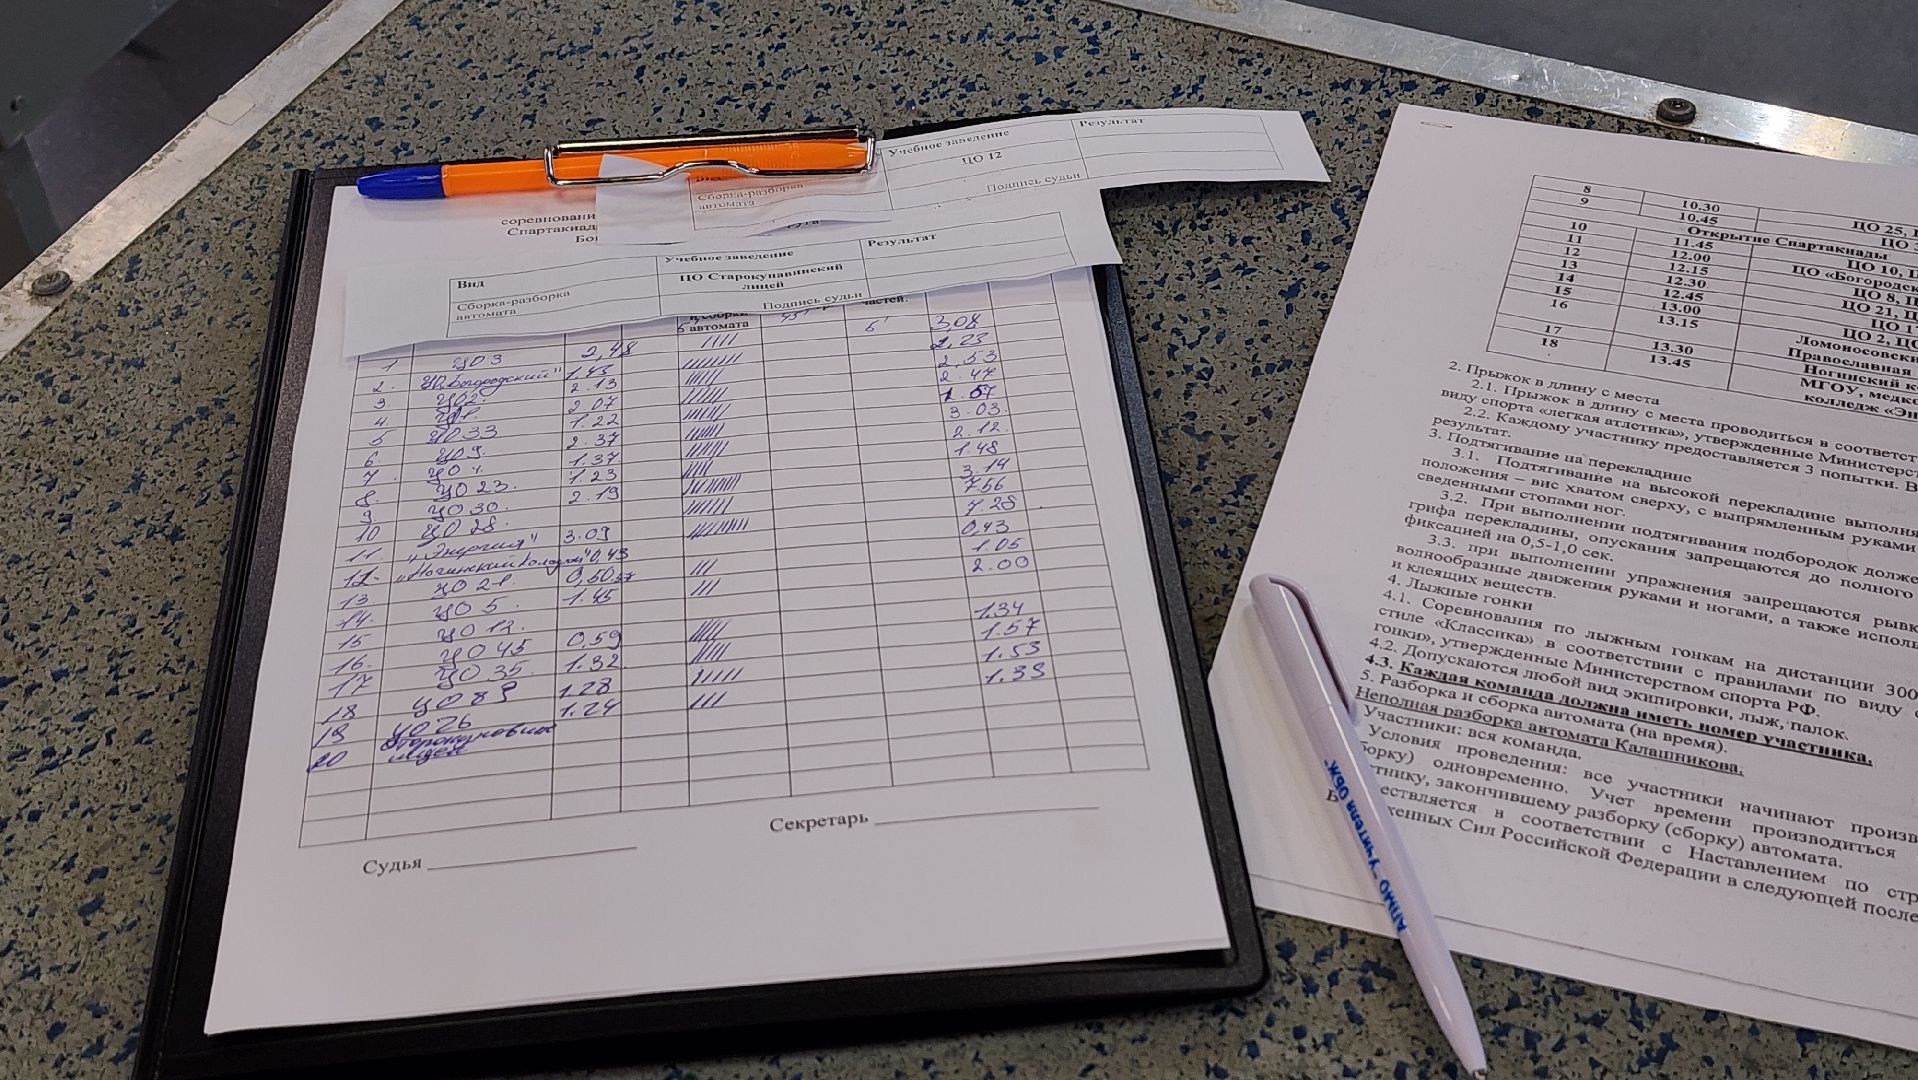 Учебное заведение
Результат
ЦО 12
Сборка-разборка
автомата
Подпись судьи
соревновани
Спартакиад
Вид
Учебное заведение
Результат
Сборка-разборка
автомата
ПО Старокупавинский
лицей
Подпись судьи
автомата
частей.
1 ЦО 3 2,48 //// 3,08
2. ЦО „Богородский" 1.43 2,23
3. ЦО 2. 2.13 2.53
4. 2.07 2.47
5 ЦО 33 1.22 1.57
6. ЦО 9. 2.37 3.03.
7. 1.37 2.12.
8. ЦО 23. 1.23 1.48
9 ЦО 30. 2.19 3.14
10 ЦО 28. 7.56
11 „Энергия" 3.09 7.28
12. „Ногинский колледж" 0,43 0,43
13 ЦО 21. 0,50 /// 1.05
14. ЦО 5. 1.45 /// 2.00
15 ЦО 12.
16. ЦО 45 0,59 1.34
17 ЦО 35. 1.32 1.57
18 ЦО 89 1.28 1.53
19 ЦО 26 1.24 /// 1.39
20
лицей
Судья
Секретарь
8 10.30 ЦО 25,
9 10.45 ЦО
Открытие Спартакиады
10 11.45 ЦО 10,
11 12.00 ЦО «Богородск
12 12.15 ЦО 8,
13 12.30 ЦО 21,
14 12.45 ЦО 1
15 13.00 ЦО 2,
16 13.15 Ломоносовски
Православная
17 13.30 Ногинский к
18 13.45 МГОУ, медко
колледж «Эн
2. Прыжок в длину с места
2.1. Прыжок в длину с места проводиться в соответст
виду спорта «легкая атлетика», утвержденные Министерст
2.2. Каждому участнику предоставляется 3 попытки. В
результат.
3. Подтягивание на перекладине
3.1. Подтягивание на высокой перекладине выполня
положения – вис хватом сверху, с выпрямленным руками
сведенными стопами ног.
3.2. При выполнении подтягивания подбородок долже
грифа перекладины, опускания запрещаются до полного
фиксацией на 0,5-1,0 сек.
3.3. при выполнении упражнения запрещаются рывк
волнообразные движения руками и ногами, а также исполь
и клеящих веществ.
4. Лыжные гонки
4.1. Соревнования по лыжным гонкам на дистанции 300
стиле «Классика» в соответствии с правилами по виду
гонки», утвержденные Министерством спорта РФ.
4.2. Допускаются любой вид экипировки, лыж, палок.
4.3. Каждая команда должна иметь номер участника.
5. Разборка и сборка автомата (на время).
Неполная разборка автомата Калашникова.
Участники: вся команда.
Условия проведения: все участники начинают произв
борку) одновременно. Учет времени производиться
стнику, закончившему разборку (сборку) автомата.
ествляется в соответствии с Наставлением по стр
женных Сил Российской Федерации в следующей после
АПМО "Учителя ОБЖ"